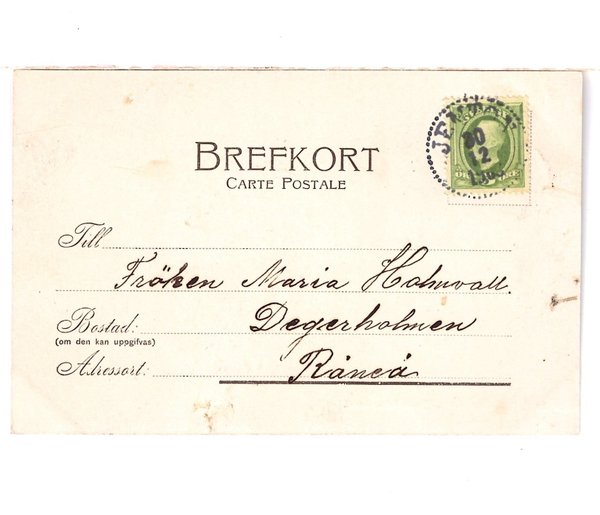 BREFKORT
CARTE POSTALE
30
12
Till
Fröken Maria Holmvall.
Bostad: Degerholmen
(om den kan uppgifvas)
Adressort: Råneå